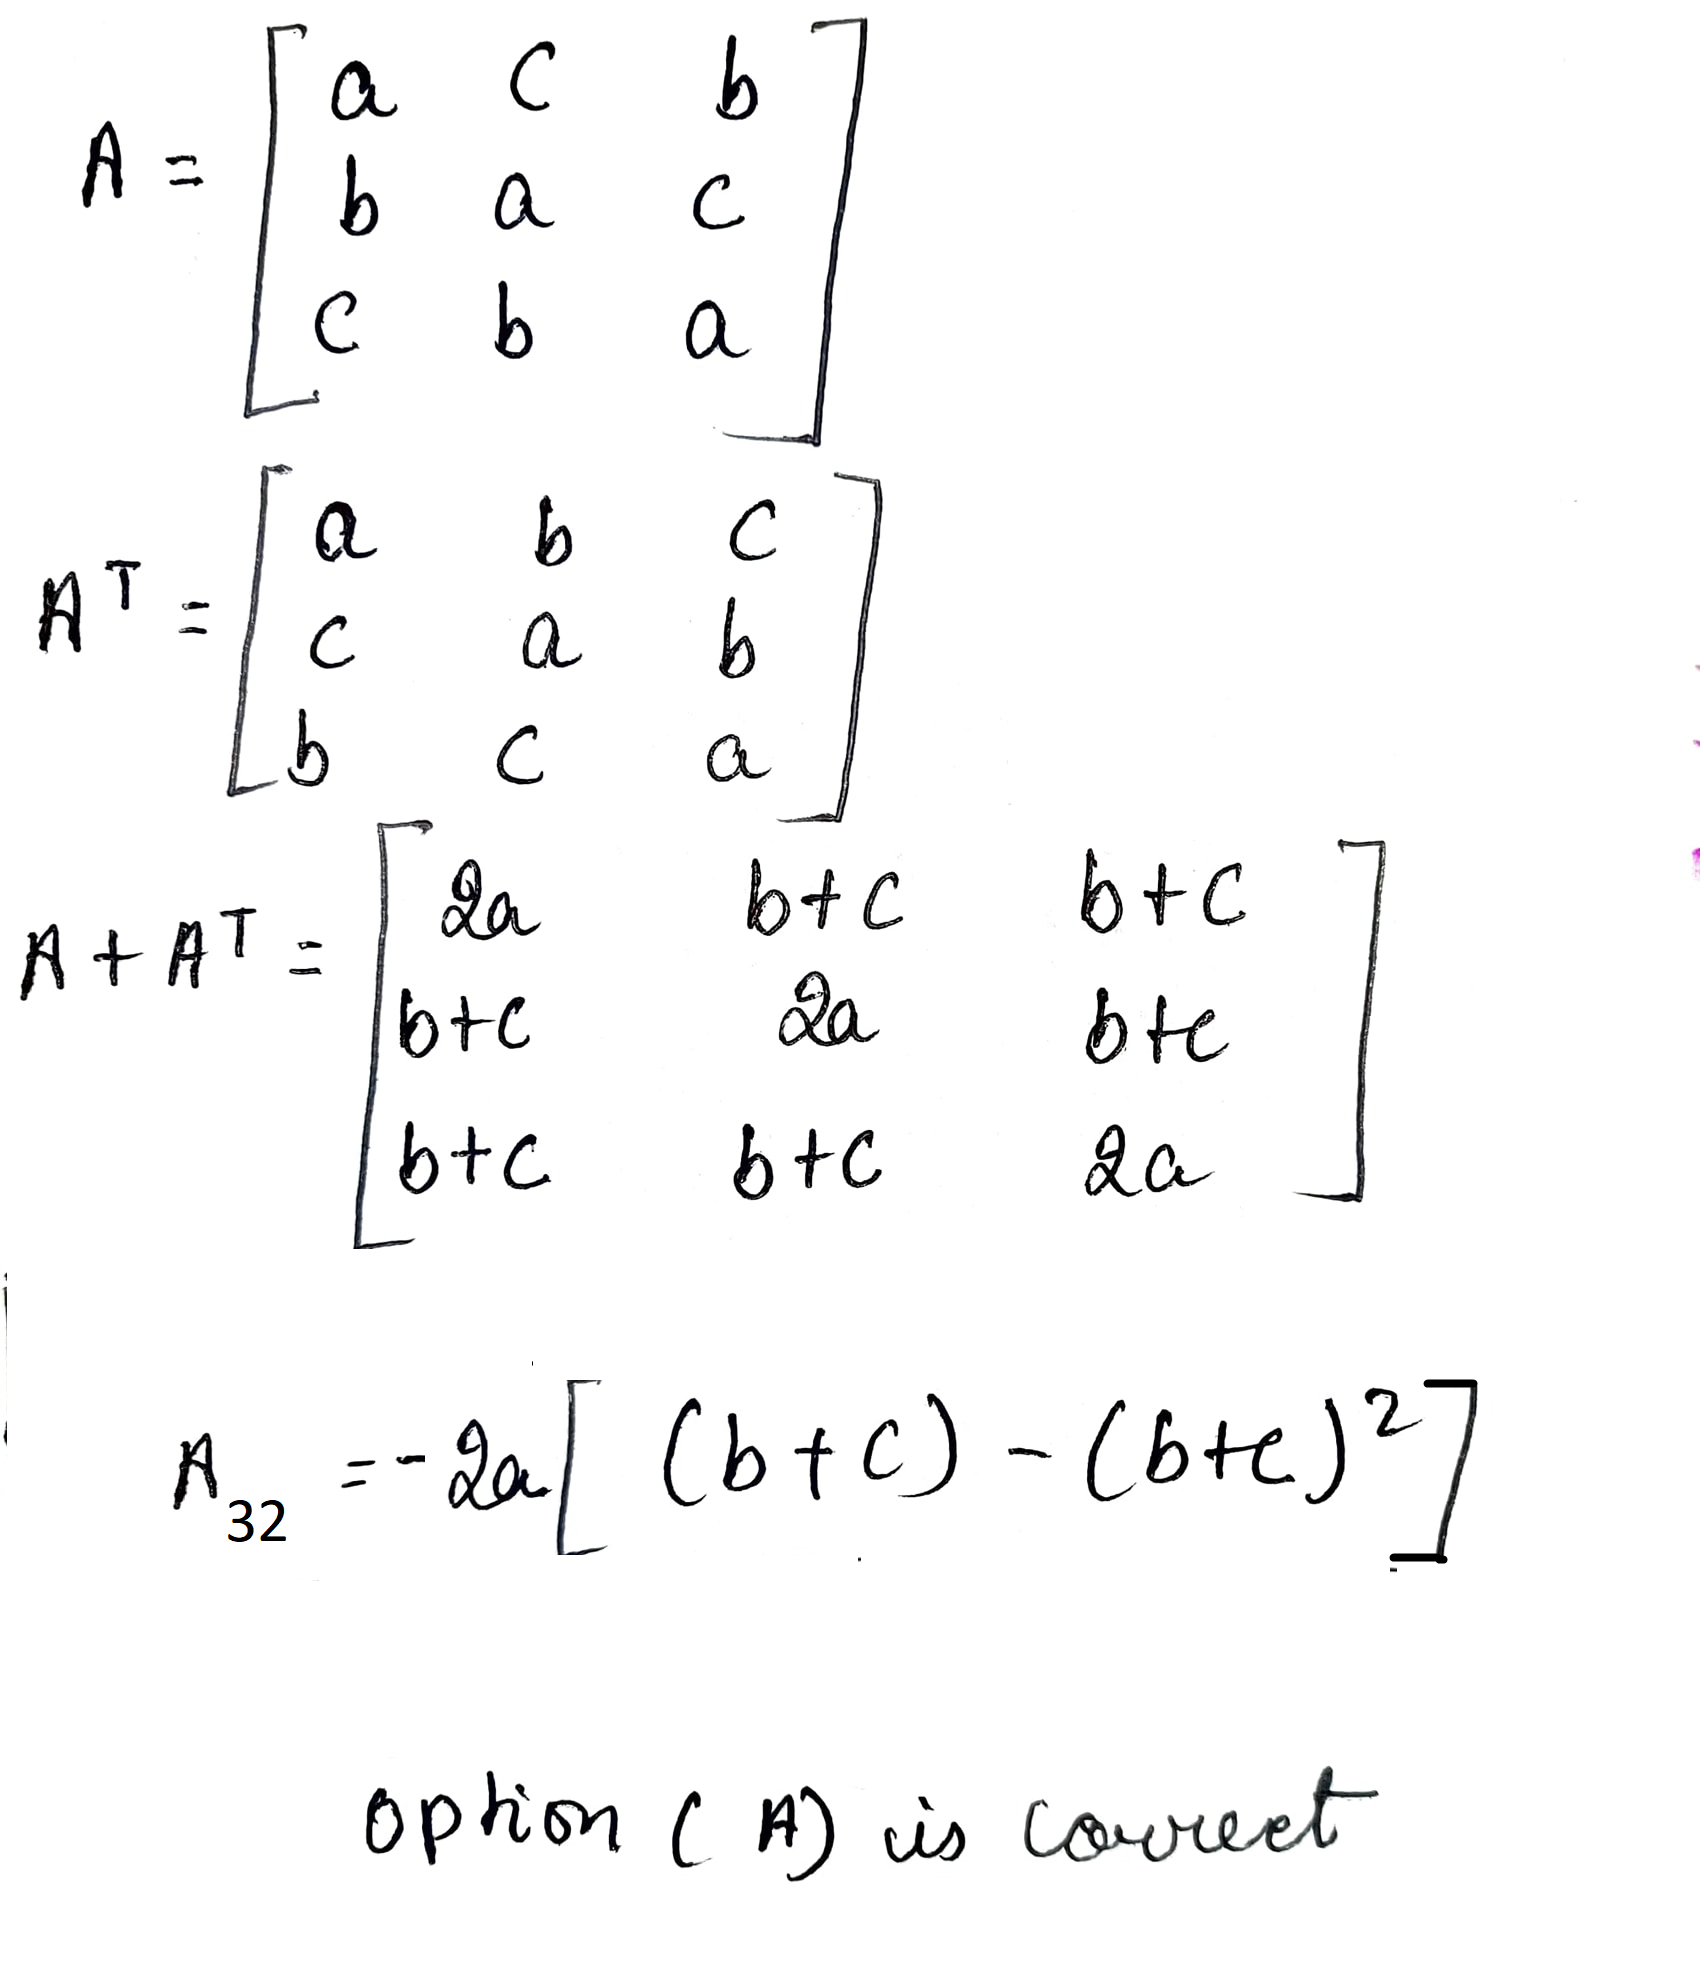 A = [ a c b
b a c
c b a ]
Aᵀ = [ a b c
c a b
b c a ]
A + Aᵀ = [ 2a b+c b+c
b+c 2a b+c
b+c b+c 2a ]
A₃₂ = - 2a [ (b+c) - (b+c)² ]
option (A) is correct